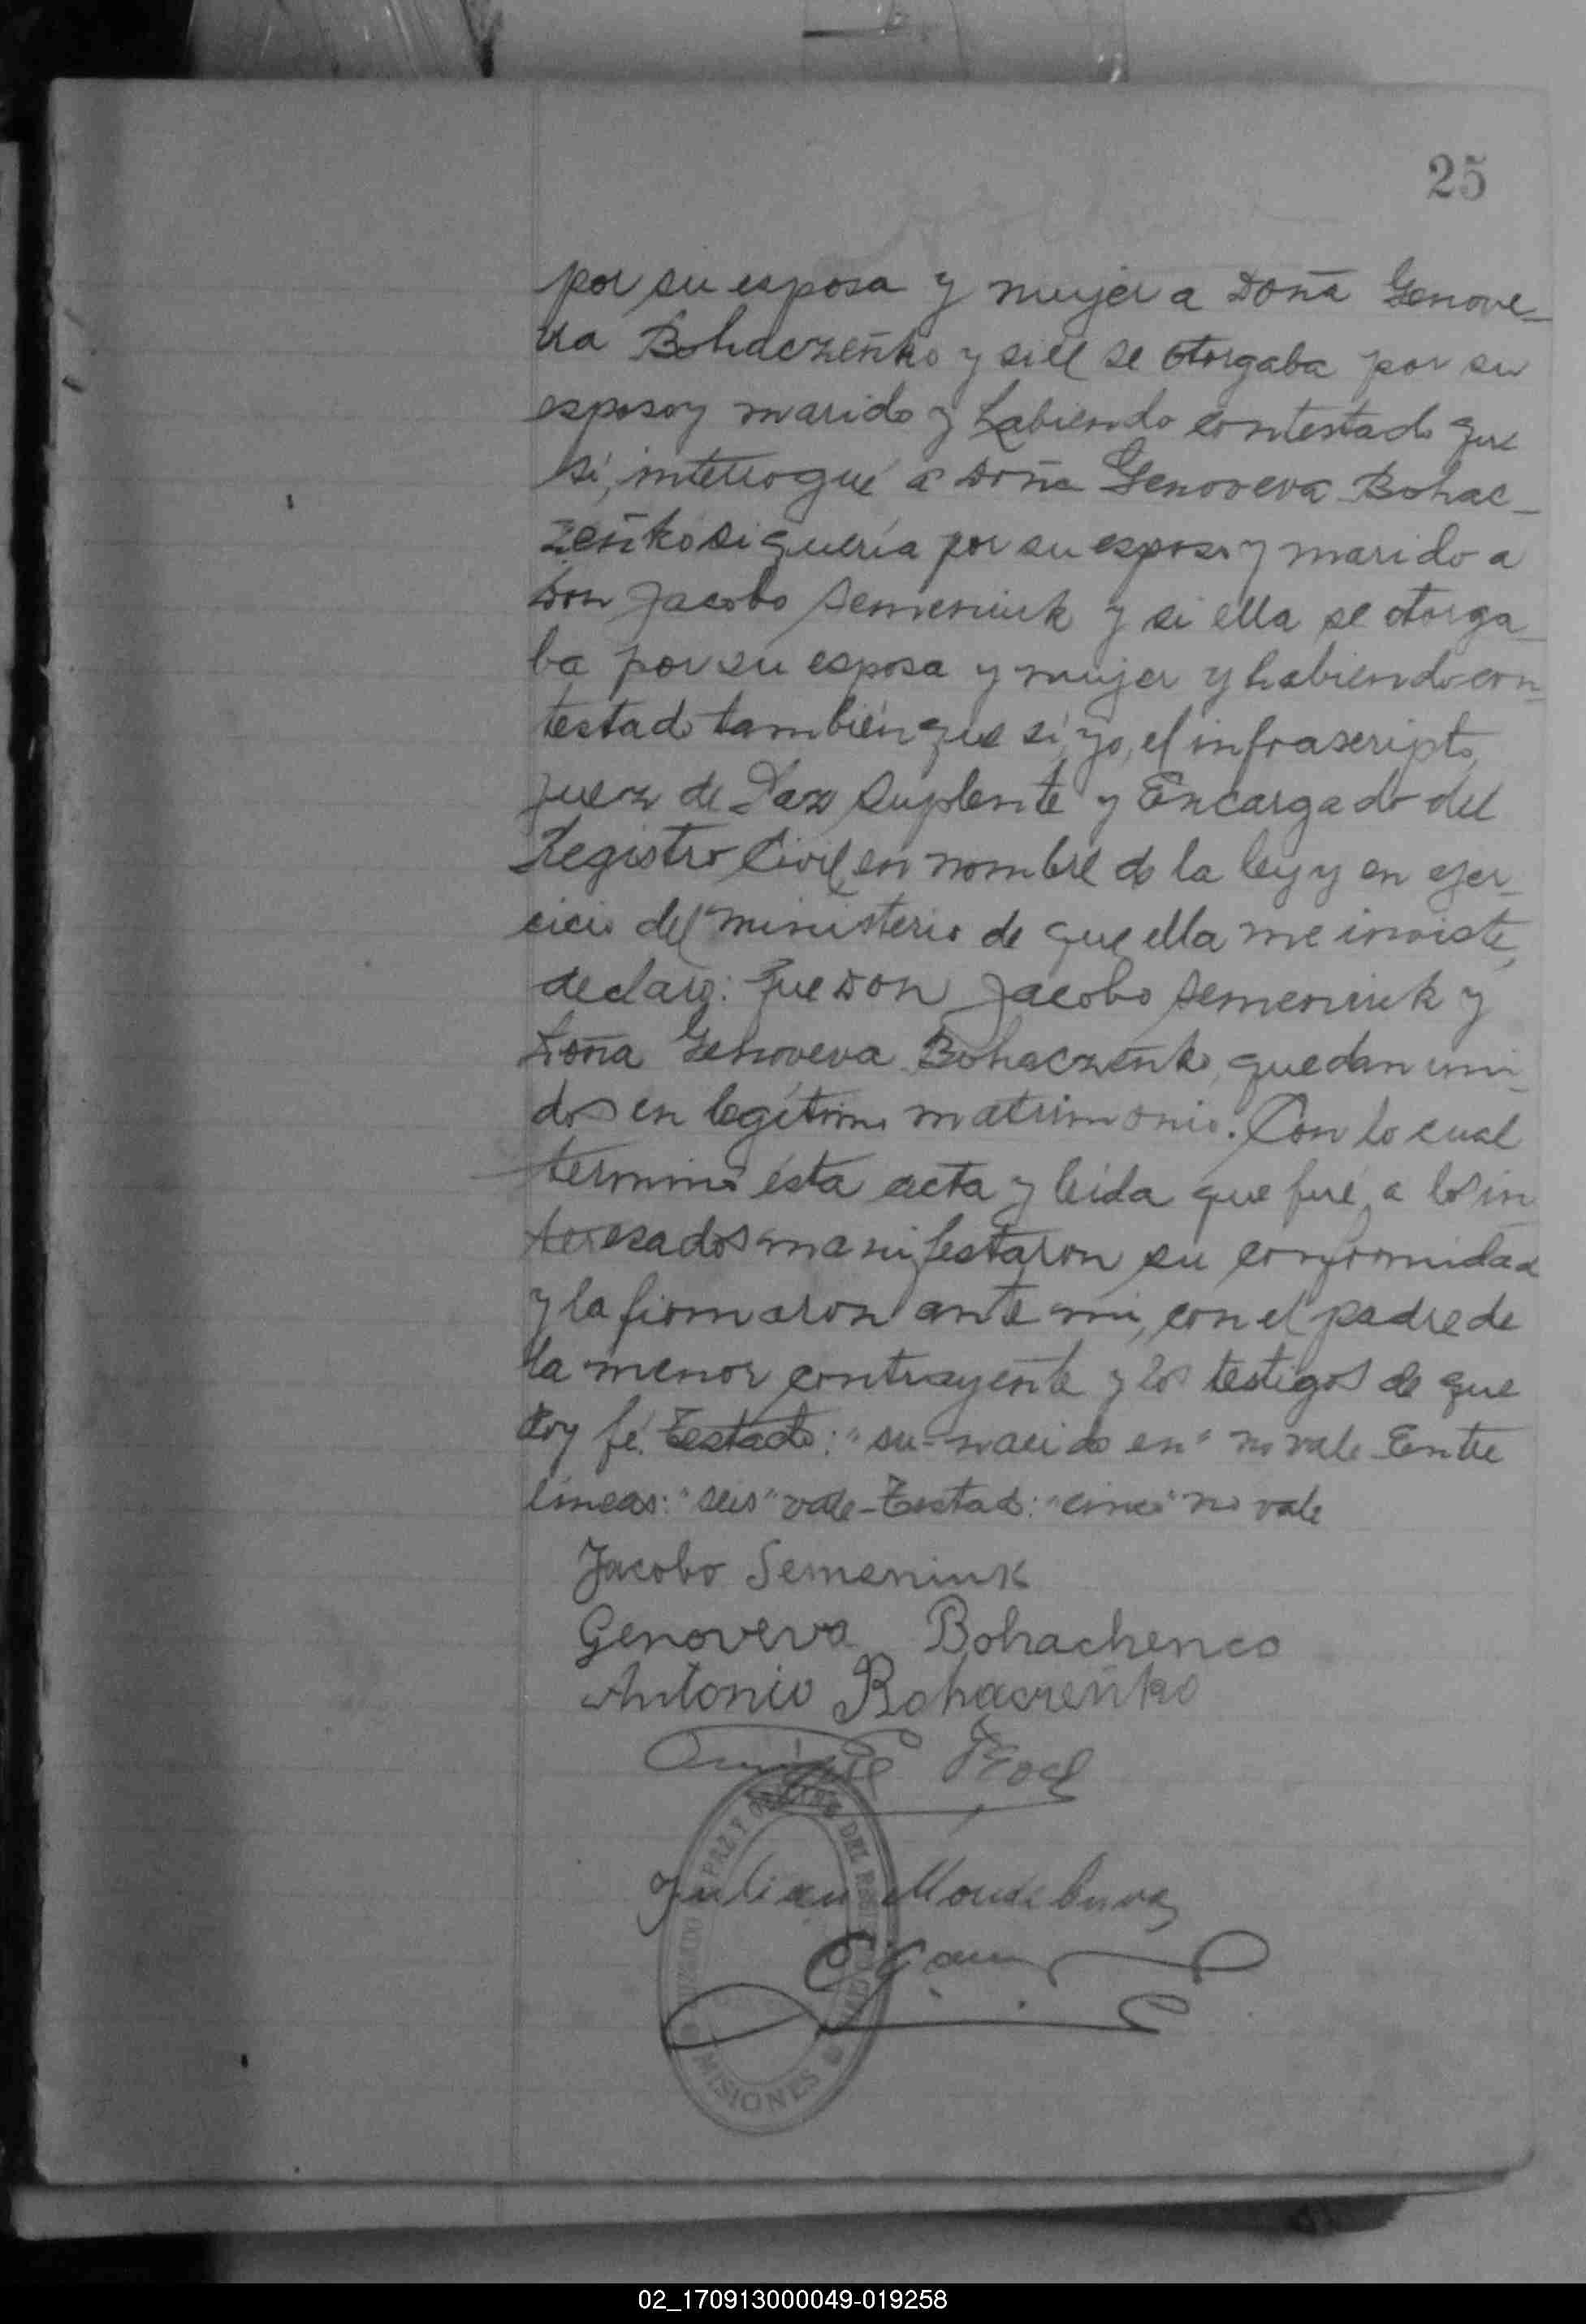 25
por su esposa y mujer a Doña Genove-
va Bohaczeñko y si él se otorgaba por su
esposo y marido y habiendo contestado que
sí, interrogué a Doña Genoveva Bohac-
zeñko si quería por su esposo y marido a
Don Jacobo Semeniuk y si ella se otorga-
ba por su esposa y mujer y habiendo con-
testado también que sí, yo, el infrascripto,
Juez de Paz Suplente y Encargado del
Registro Civil, en nombre de la ley y en ejer-
cicio del ministerio de que ella me inviste,
declaro: Que Don Jacobo Semeniuk y
Doña Genoveva Bohaczeñko, quedan uni-
dos en legítimo matrimonio. Con lo cual
terminó ésta acta y leída que fué, a los in-
teresados manifestaron su conformidad
y la firmaron ante mí, con el padre de
la menor contrayente y los testigos de que
doy fé. Testado: "su-nacido en" no vale Entre
líneas: "seis" vale-Testado: "cinco" no vale
Jacobo Semeniuk
Genoveva Bohachenco
Antonio Bohaczeñko
Julian
PAZ Y DEL REGISTRO CIVIL
JUZGADO
MISIONES
02_170913000049-019258